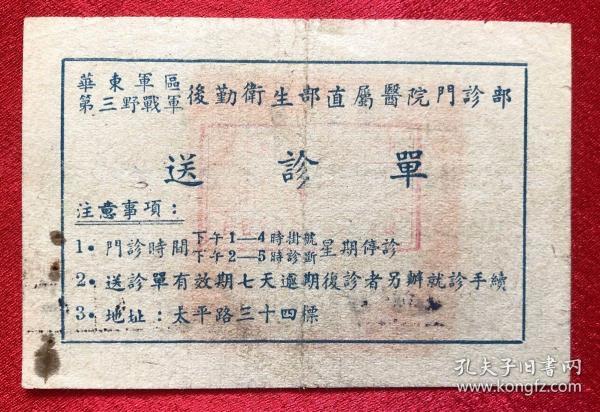 華東軍區
第三野戰軍
後勤衛生部直屬醫院門診部
送診單
注意事項：
1. 門診時間 下午1—4時掛號 星期停診
下午2—5時診斷
2. 送診單有效期七天逾期復診者另辦就診手續
3. 地址：太平路三十四標
孔夫子旧书网
www.kongfz.com